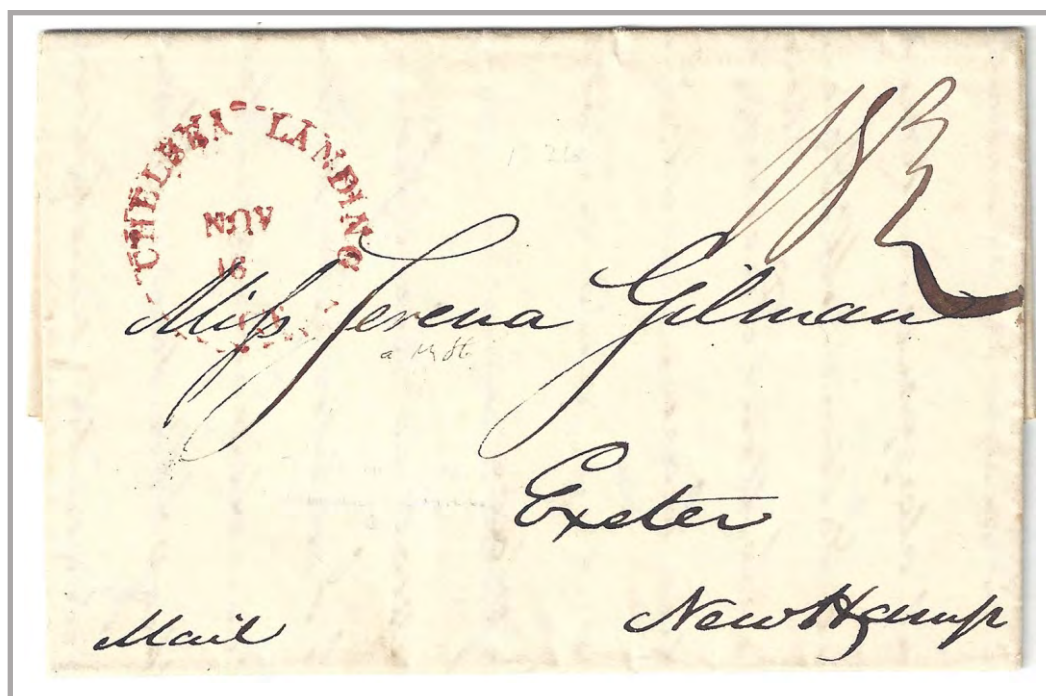 CHELSEA LANDING
NOV
16
18¾
Miss Serena Gilman
Exeter
Mail
New Hamp